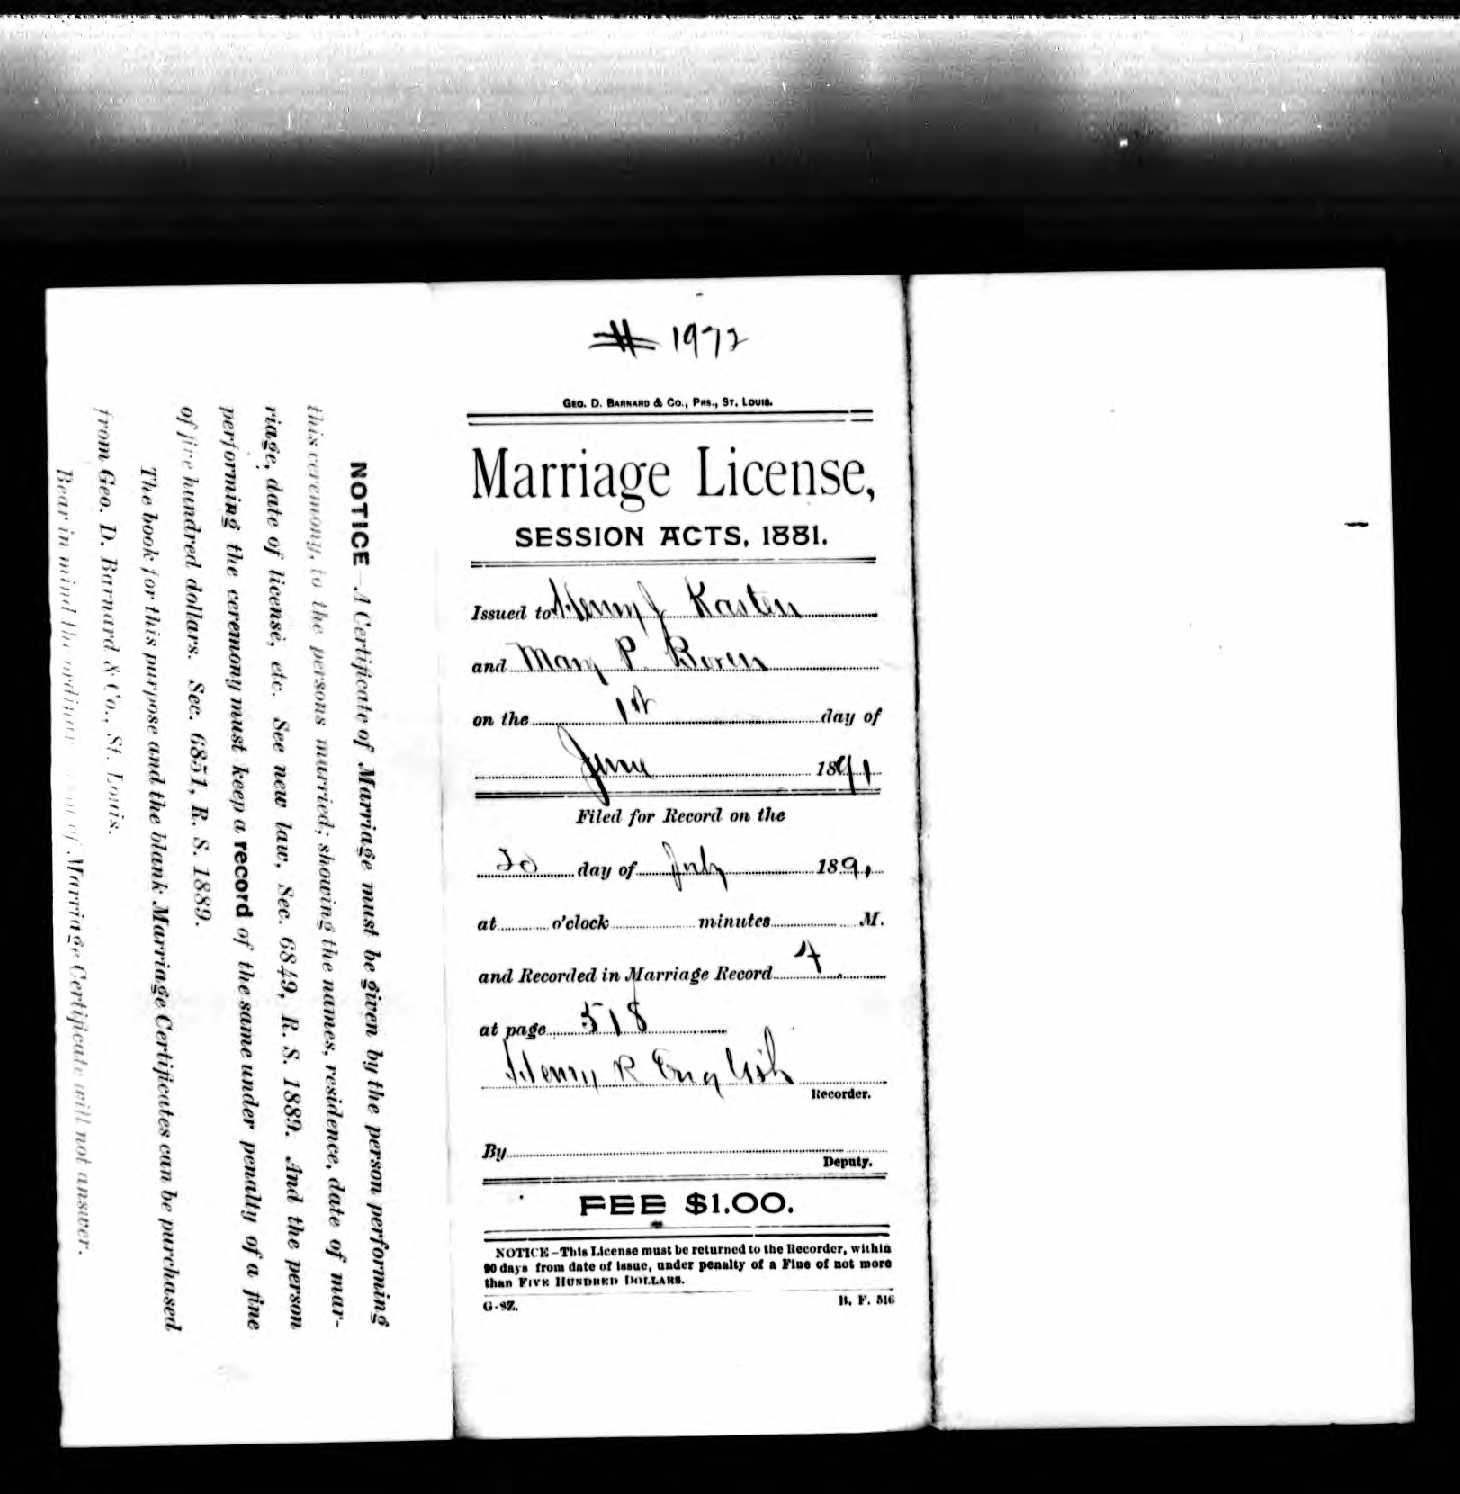 NOTICE—A Certificate of Marriage must be given by the person performing
this ceremony, to the persons married; showing the names, residence, date of mar-
riage, date of license, etc. See new law, Sec. 6849, R. S. 1889. And the person
performing the ceremony must keep a record of the same under penalty of a fine
of five hundred dollars. Sec. 6851, R. S. 1889.
The book for this purpose and the blank Marriage Certificates can be purchased
from Geo. D. Barnard & Co., St. Louis.
Bear in mind the ordinary of Marriage Certificate will not answer.
# 1972
GEO. D. BARNARD & CO., PRS., ST. LOUIS.
Marriage License,
SESSION ACTS, 1881.
Issued to Henry J Kasten
and Mary P.
on the 1st day of
June 1891
Filed for Record on the
20 day of July 1891
at o'clock minutes M.
and Recorded in Marriage Record 4
at page 518
Henry R English
Recorder.
By
Deputy.
FEE $1.00.
NOTICE—This License must be returned to the Recorder, within
90 days from date of issue, under penalty of a Fine of not more
than FIVE HUNDRED DOLLARS.
G-SZ. B. F. 516